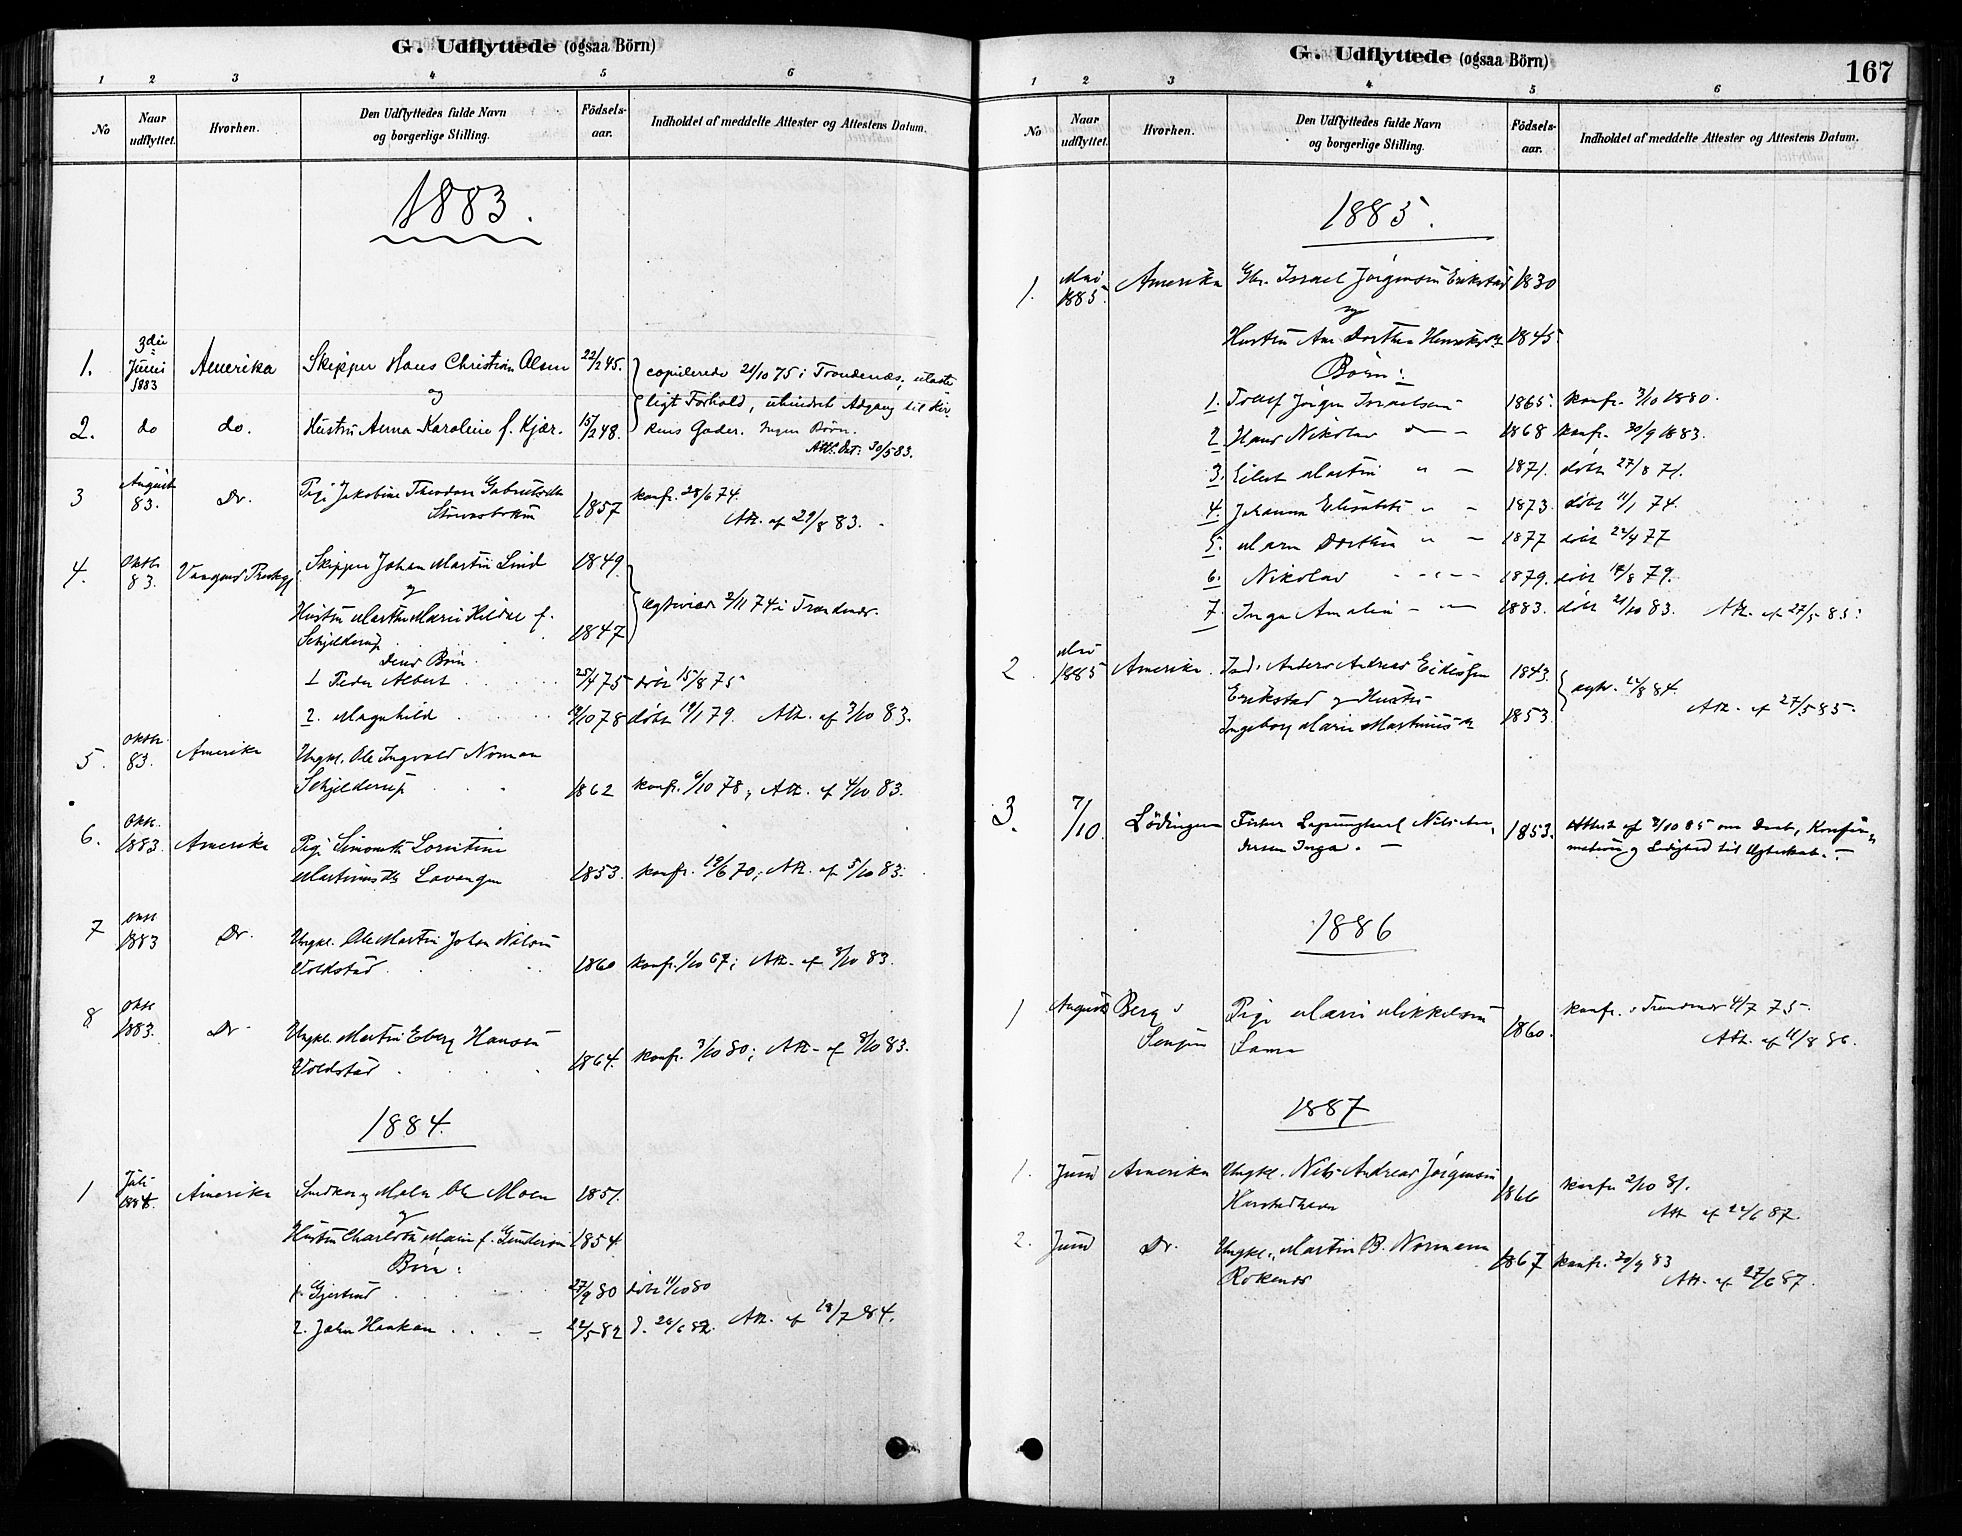 G. Udflyttede (ogsaa Börn)
1 2 3 4 5 6
No
Naar udflyttet.
Hvorhen.
Den Udflyttedes fulde Navn og borgerlige Stilling.
Födsels-aar.
Indholdet af meddelte Attester og Attestens Datum.
1883.
1. 3die Juni 1883 Amerika Skipper Hans Christian Olsen 22/2 45. copulerede 21/10 75 i Trondenæs;
og ligt Forhold, uhindret Adgang til Kir
2. do do. Hustru Anna Karoline f. Kjær. 15/2 48. kens Goder. Ingen Börn.
Att. Dat. 30/5 83.
3 August 83. Do. Pige Jakobine Theodora 1857 konf. 28/6 74.
Att. af 29/8 83.
4. Oktb. 83. Skipper Johan Martin Lind 1849
og
Hustru Martha Marie f. Schjelderup 1847 ægteviede 2/11 74 i Trondenæs.
deres Börn.
1 Peder Albert 25/4 75 döbt 15/8 75
2. Magnhild 9/10 78 döbt 19/1 79. Att. af 3/10 83.
5. Oktbr. 83. Amerika Ungkl. Ole Ingvald Norman
Schjelderup 1862 konf. 6/10 78; Att. af 4/10 83.
6. Oktr. 1883. Amerika Pige
Lavangen 1853. konf. 19/6 70; Att. af 5/10 83.
7 1883 Do. Ungkl. Ole Martin Johan Nilsen
Voldstad 1860 konf. Att. af 8/10 83.
8 Oktr 1883. Do Ungkl. Martin Eberg Hansen
Voldstad 1864. konf. 3/10 80; Att. af 8/10 83.
1884.
1 Juli 1884. Amerika Snedker og Maler Ole Moen 1851.
og
Hustru Marie f. 1854
Börn:
1. Gjertrud 27/9 80 döbt 11/10 80
2. John Haakon 22/5 82 d. 26/6 82. Att. af 18/7 84.
G. Udflyttede (ogsaa Börn)
167
1 2 3 4 5 6
No
Naar udflyttet.
Hvorhen.
Den Udflyttedes fulde Navn og borgerlige Stilling.
Födsels-aar.
Indholdet af meddelte Attester og Attestens Datum.
1885.
1. Mai 1885. Amerika Gbr. Israel Jörgensen Erikstad 1830
og
Hustru Ane Dorthea 1845
Börn:
1. Jörgen Israelsen 1865. konfr. 3/10 1880.
2 Hans Nikolai 1868 konfr. 30/9 1883.
3. Eilert Martin " 1871. döbt 27/8 71.
4. Johanna Elisabeth " 1873. döbt 11/1 74.
5. Dorthea " 1877 döbt 22/4 77
6. Nikolai 1879. döbt 17/8 79.
7. Inga Amalie 1883. döbt 21/10 83. Att. af 27/5 85.
2 Mai 1885 Amerika. Anders Andreas 1843.
Erikstad og Hustru ægtv. 84.
Ingeborg Marie 1853. Att. af 27/5 85.
3. 7/10 Lödingen Fisker Nils
Inga. 1853. Attest af 7/10 85 om Daab, Konfir-
mation og Ledighed til Ægteskab.
1886
1 August Berg i Pige Marie Mikkelsen konfr. i Trondenæs 4/7 75.
Senjen Sama 1860. Att. af 11/8 86.
1887
1. Juni Amerika Ungkl. Nils Andreas Jörgensen
Harstadhavn 1866 konfr. 2/10 81.
Att af 22/6 87.
2. Juni Do. Ungkl. Martin B. Normann
Rökenes 1867 konfr. 30/9 83
Att. af 27/6 87.